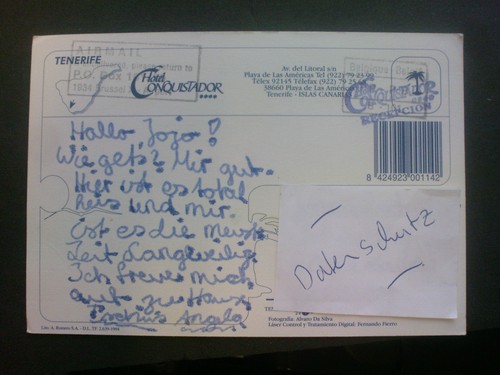 TENERIFE
AIRMAIL
P.O. Box
Hotel
CONQUISTADOR
Av. del Litoral s/n
Playa de Las Américas Tel (922) 79
Télex 92145 Téléfax (922) 79 25
38660 Playa de Las Améric
Tenerife - ISLAS CANARI
CONQUISTADOR
RECEPCION
8 424923 001142
Hallo Jojo!
Wie gets? Mir gut.
Hier ist es total
heis und mir
ist es die meiste
Zeit Langweilig
Ich freue mich
auf zu Hause
Angela
Datenschutz
Fotografía: Alvaro Da Silva
Láser Control y Tratamiento Digital: Fernando Fierro